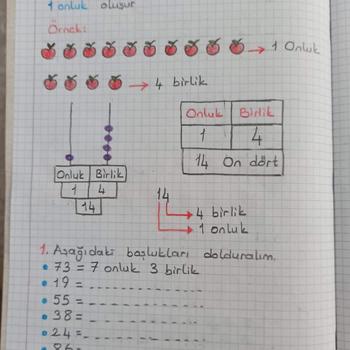 1 onluk oluşur
Örnek:
→ 1 Onluk
→ 4 birlik
Onluk Birlik
1 4
14
Onluk Birlik
1 4
14 On dört
14
4 birlik
1 onluk
1. Aşağıdaki boşlukları dolduralım.
• 73 = 7 onluk 3 birlik
• 19 = _ _ _ _ _ _ _ _ _ _
• 55 = _ _ _ _ _ _ _ _ _ _
• 38 = _ _ _ _ _ _ _ _ _ _
• 24 = _ _ _ _ _ _ _ _ _ _
86